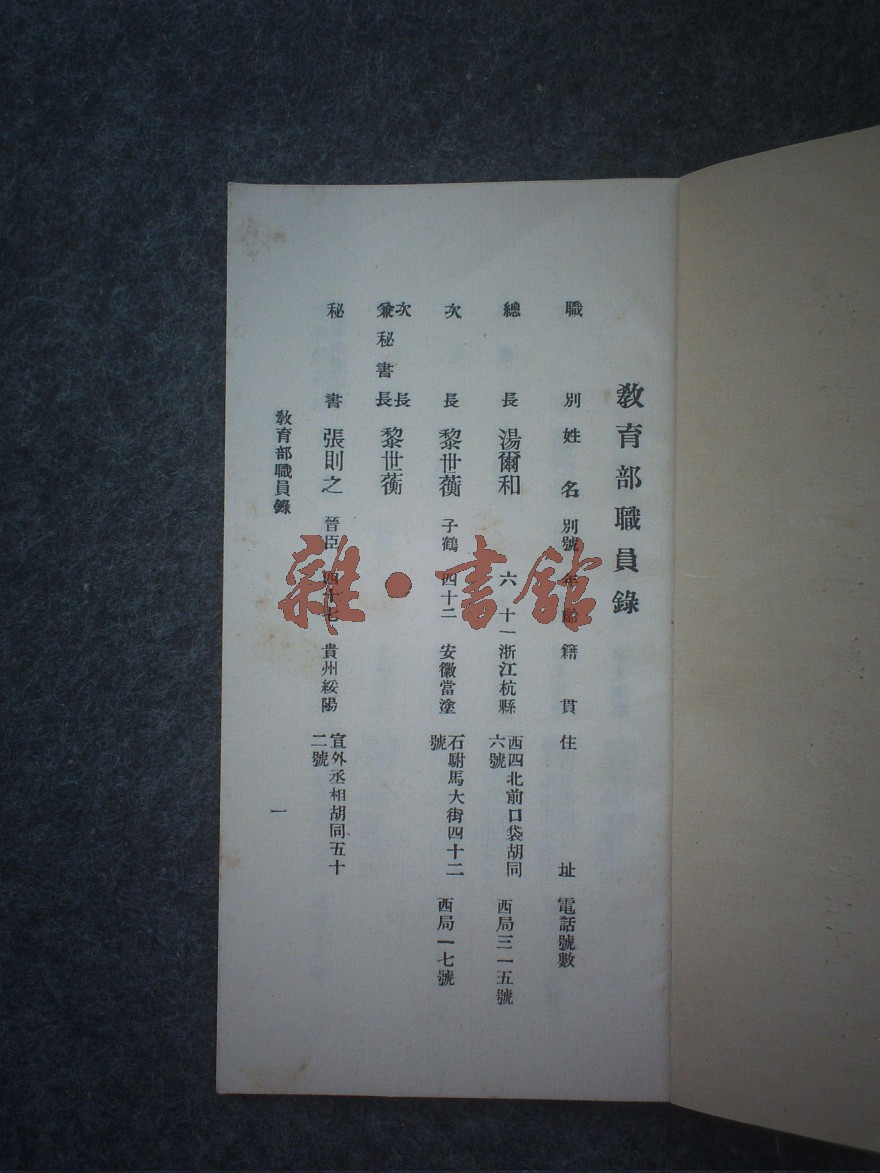 教育部職員錄
職別 姓名 別號 年齡 籍貫 住址 電話號數
總長 湯爾和 六十一 浙江杭縣 西四北前口袋胡同六號 西局三一五號
次長 黎世蘅 子鶴 四十二 安徽當塗 石駙馬大街四十二號 西局一七號
次長兼秘書長 黎世蘅
秘書 張則之 晉臣 四十七 貴州綏陽 宣外丞相胡同五十二號
教育部職員錄
一
雜·書館